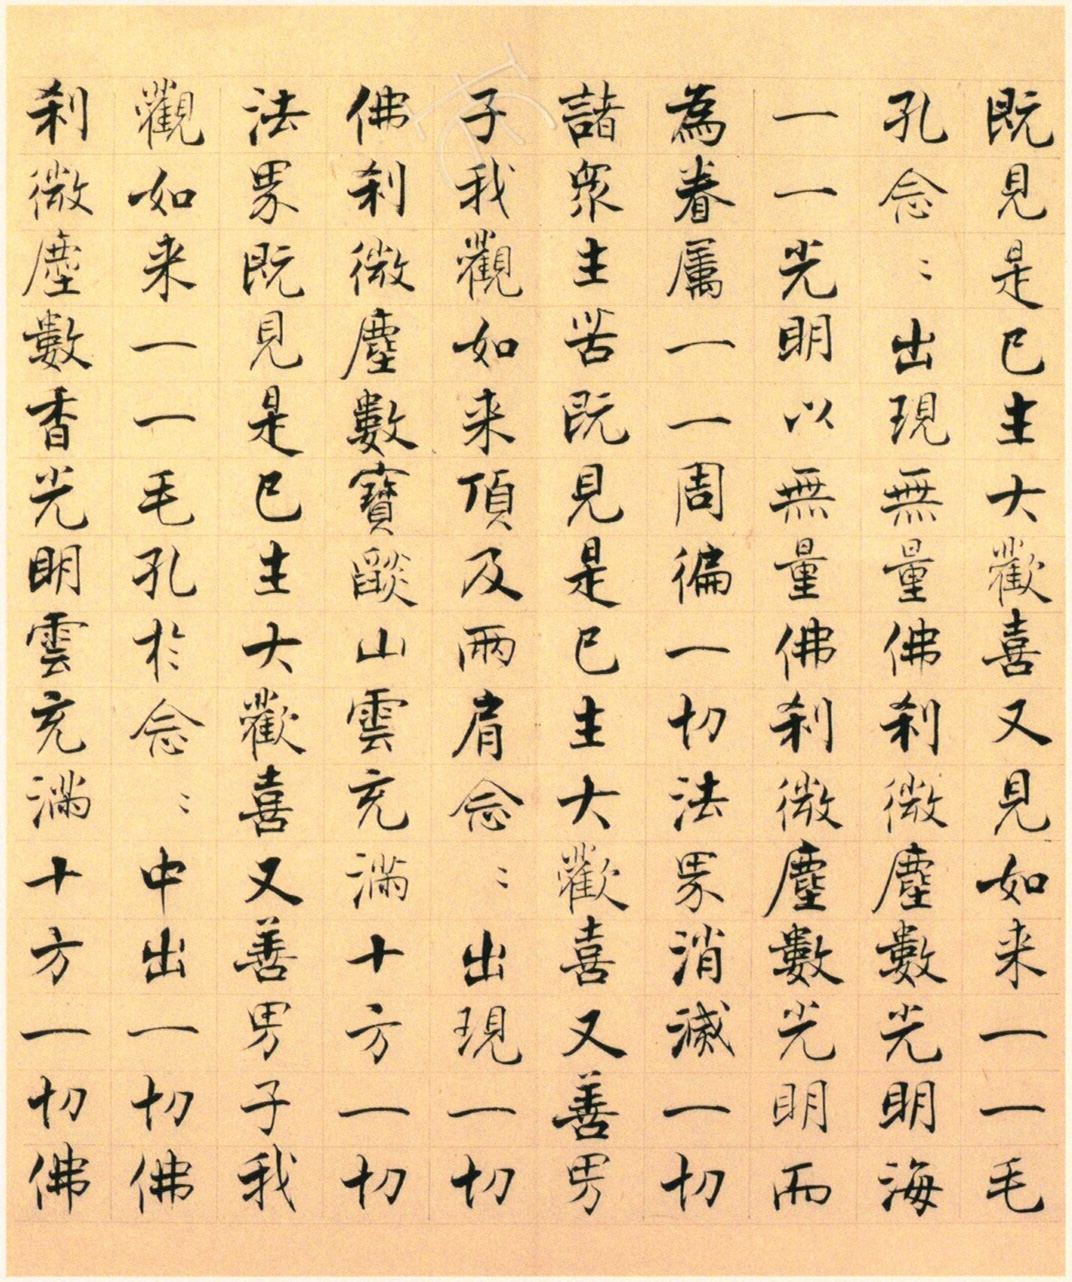 既見是已生大歡喜又見如来一一毛
孔念〻出現無量佛刹微塵數光明海
一一光明以無量佛刹微塵數光明而
為眷属一一周徧一切法界消滅一切
諸衆生苦既見是已生大歡喜又善男
子我觀如来頂及兩肩念〻出現一切
佛刹微塵數寶燄山雲充滿十方一切
法界既見是已生大歡喜又善男子我
觀如来一一毛孔於念〻中出一切佛
刹微塵數香光明雲充滿十方一切佛